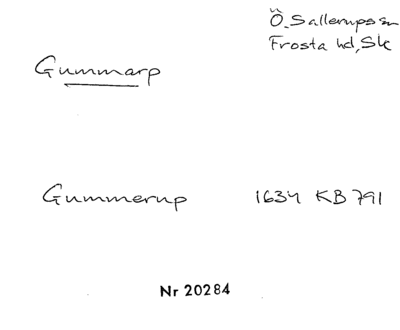 Ö. Sallerups sn
Frosta hd, Sk
Gummarp
Gummerup 1634 KB 791
Nr 20284